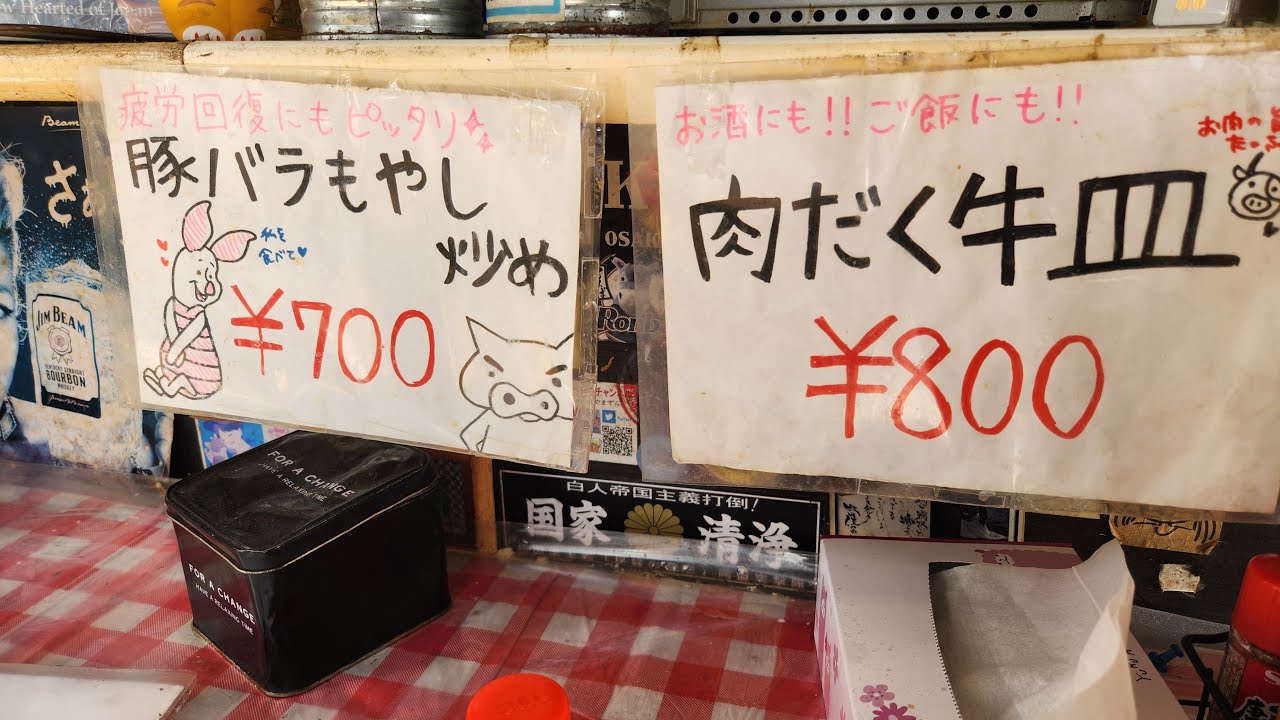 w Hearted of Japan
疲労回復にもピッタリ
豚バラもやし
炒め
私を
食べて♥
¥700
お酒にも!!ご飯にも!!
肉だく牛皿
¥800
お肉の
Beam
さ
JIM BEAM
KENTUCKY STRAIGHT
BOURBON
WHISKEY
OSAK
FOR A CHANGE
HAVE A RELAXING TIME
FOR A CHANGE
HAVE A RELAXING TIME
白人帝国主義打倒!
国家 清浄